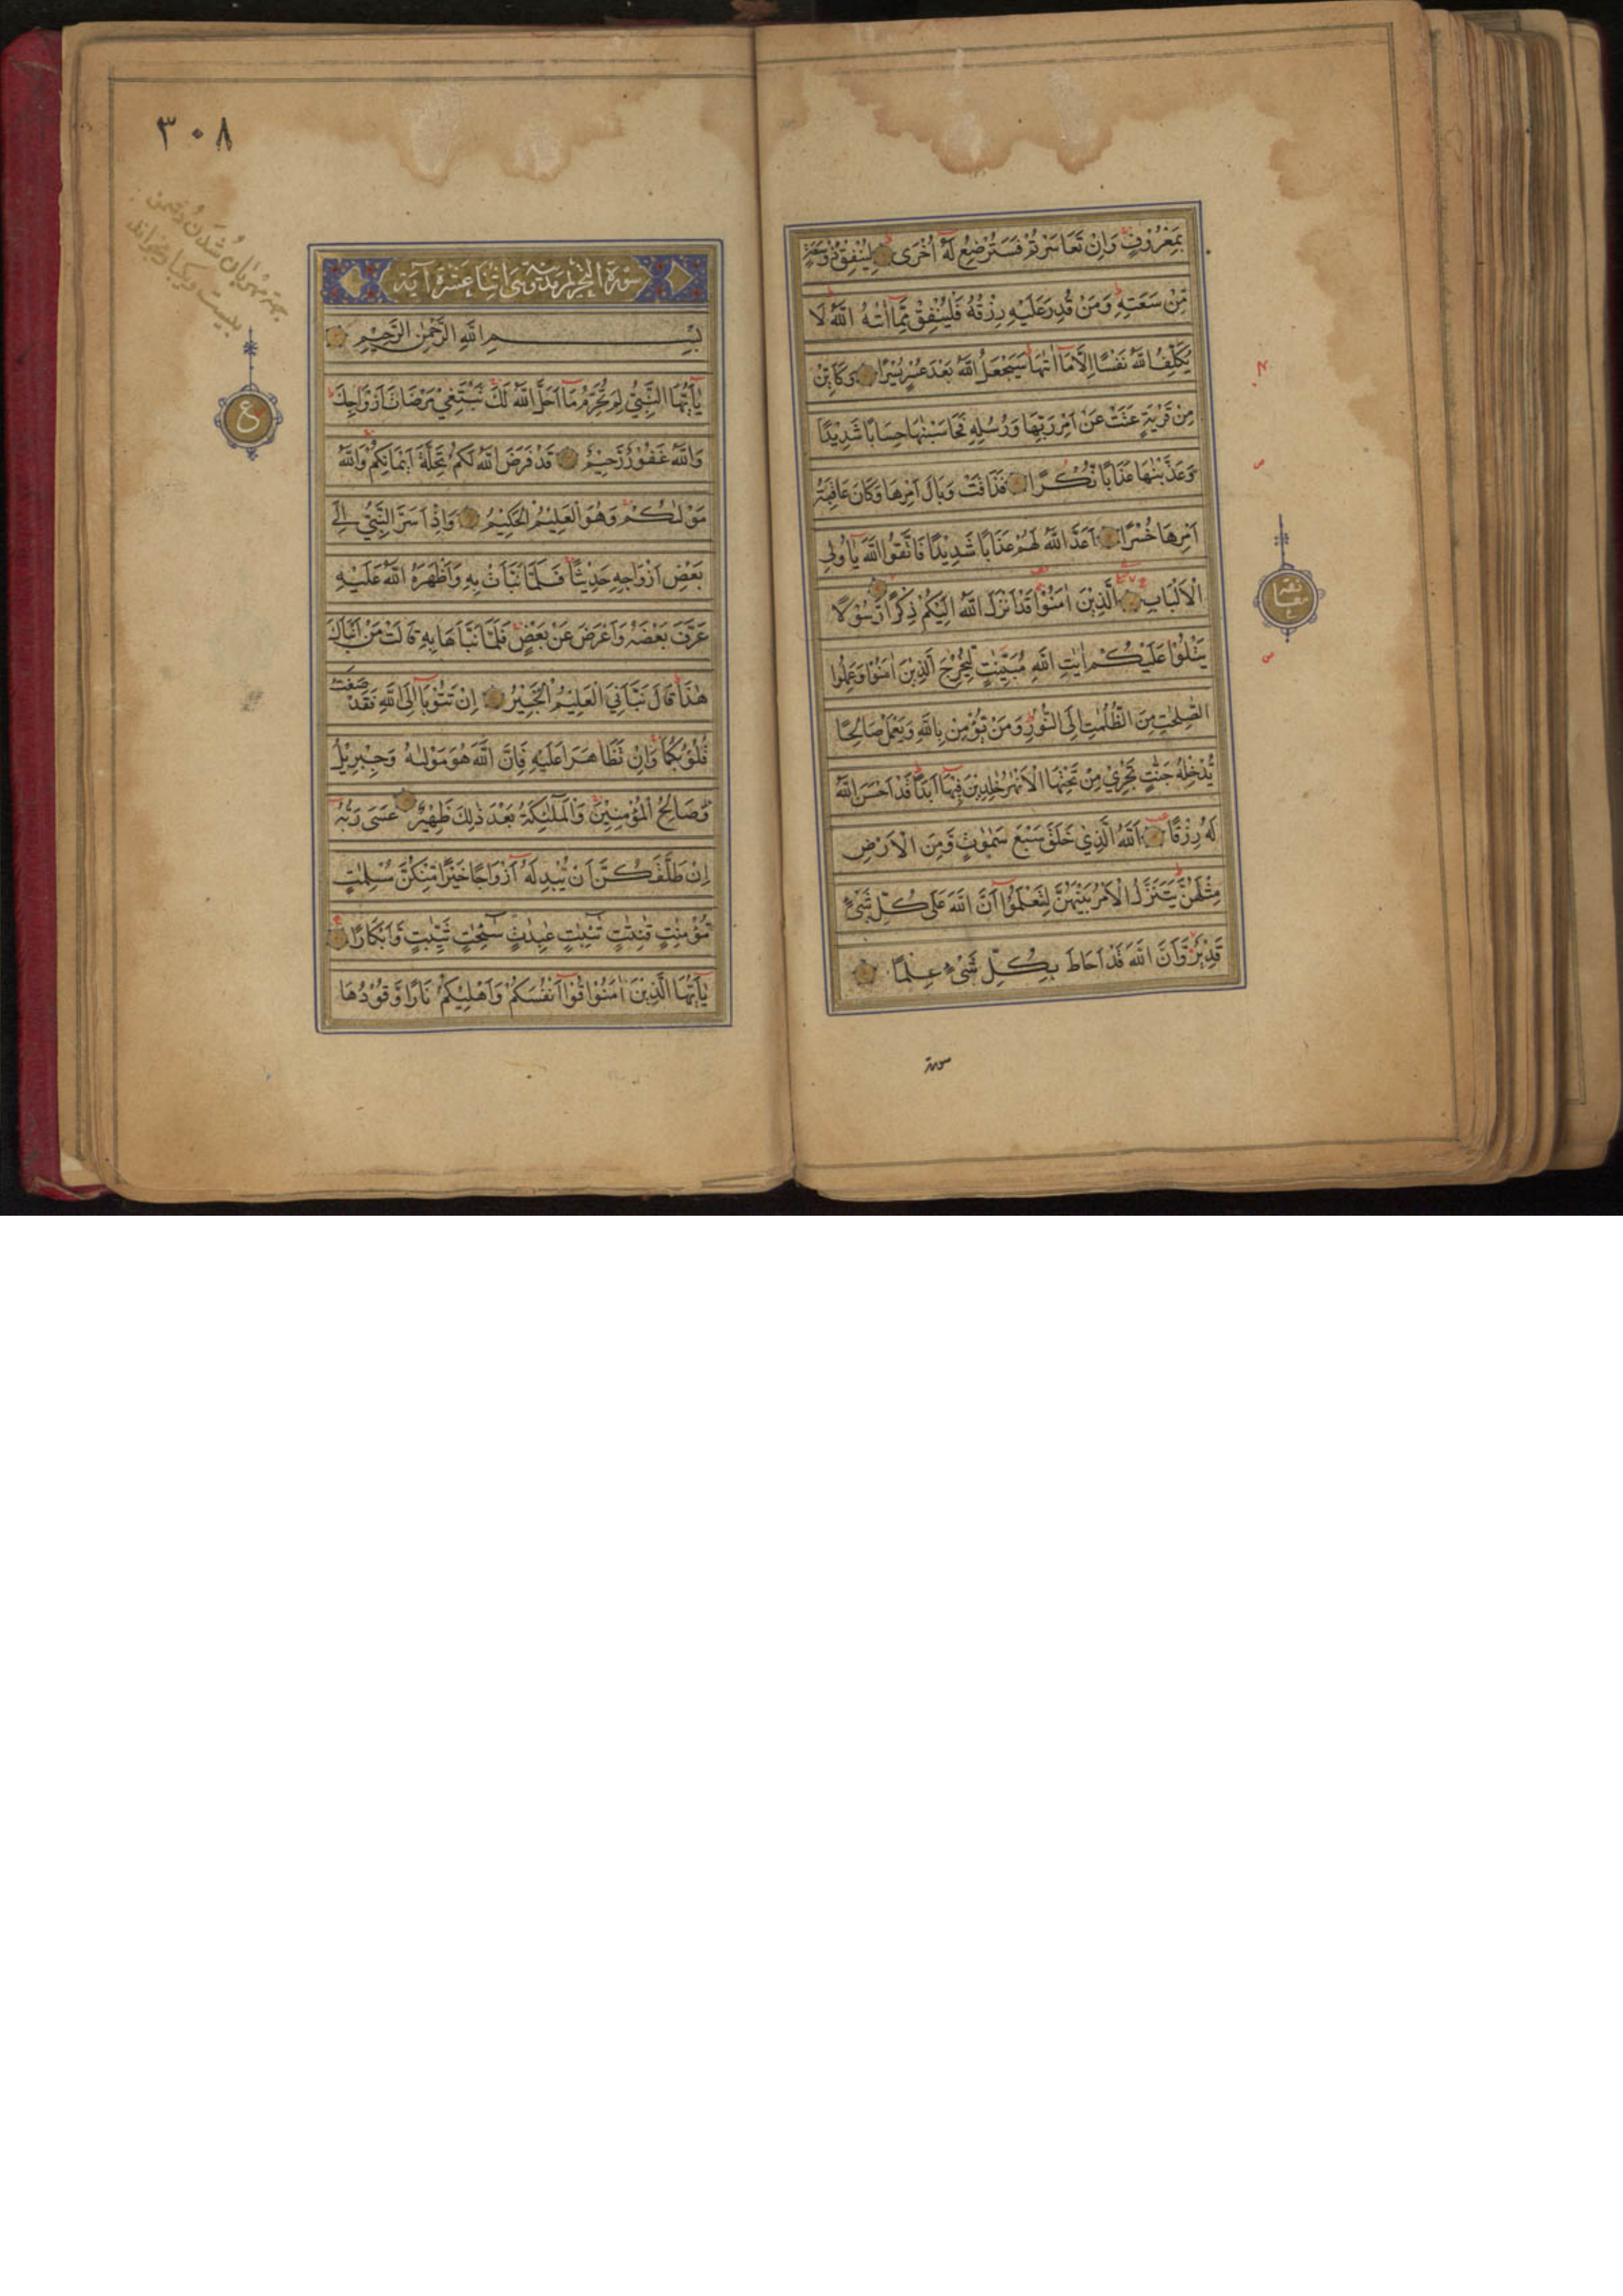 بِمَعْرُوْفٍ وَاِنْ تَعَاسَرْتُمْ فَسَتُرْضِعُ لَهٗ اُخْرٰى لِيُنْفِقْ ذُوْ سَعَةٍ
مِّنْ سَعَتِهٖ وَمَنْ قُدِرَ عَلَيْهِ رِزْقُهٗ فَلْيُنْفِقْ مِمَّا اٰتٰىهُ اللّٰهُ لَا
يُكَلِّفُ اللّٰهُ نَفْسًا اِلَّا مَا اٰتٰىهَا سَيَجْعَلُ اللّٰهُ بَعْدَ عُسْرٍ يُسْرًا وَكَاَيِّنْ
مِنْ قَرْيَةٍ عَتَتْ عَنْ اَمْرِ رَبِّهَا وَرُسُلِهٖ فَحَاسَبْنٰهَا حِسَابًا شَدِيْدًا
وَعَذَّبْنٰهَا عَذَابًا نُّكْرًا فَذَاقَتْ وَبَالَ اَمْرِهَا وَكَانَ عَاقِبَةُ
اَمْرِهَا خُسْرًا اَعَدَّ اللّٰهُ لَهُمْ عَذَابًا شَدِيْدًا فَاتَّقُوا اللّٰهَ يٰاُولِى
الْاَلْبَابِ الَّذِيْنَ اٰمَنُوْا قَدْ اَنْزَلَ اللّٰهُ اِلَيْكُمْ ذِكْرًا رَّسُوْلًا
يَتْلُوْا عَلَيْكُمْ اٰيٰتِ اللّٰهِ مُبَيِّنٰتٍ لِيُخْرِجَ الَّذِيْنَ اٰمَنُوْا وَعَمِلُوا
الصّٰلِحٰتِ مِنَ الظُّلُمٰتِ اِلَى النُّوْرِ وَمَنْ يُؤْمِنْ بِاللّٰهِ وَيَعْمَلْ صَالِحًا
يُدْخِلْهُ جَنّٰتٍ تَجْرِيْ مِنْ تَحْتِهَا الْاَنْهٰرُ خٰلِدِيْنَ فِيْهَا اَبَدًا قَدْ اَحْسَنَ اللّٰهُ
لَهٗ رِزْقًا اَللّٰهُ الَّذِيْ خَلَقَ سَبْعَ سَمٰوٰتٍ وَّمِنَ الْاَرْضِ
مِثْلَهُنَّ يَتَنَزَّلُ الْاَمْرُ بَيْنَهُنَّ لِتَعْلَمُوْا اَنَّ اللّٰهَ عَلٰى كُلِّ شَىْءٍ
قَدِيْرٌ وَّاَنَّ اللّٰهَ قَدْ اَحَاطَ بِكُلِّ شَىْءٍ عِلْمًا
سورة
٣٠٨
سورة التحريم مدنية وهى اثنا عشرة آية
بِسْمِ اللّٰهِ الرَّحْمٰنِ الرَّحِيْمِ
يٰاَيُّهَا النَّبِيُّ لِمَ تُحَرِّمُ مَا اَحَلَّ اللّٰهُ لَكَ تَبْتَغِيْ مَرْضَاتَ اَزْوَاجِكَ
وَاللّٰهُ غَفُوْرٌ رَّحِيْمٌ قَدْ فَرَضَ اللّٰهُ لَكُمْ تَحِلَّةَ اَيْمَانِكُمْ وَاللّٰهُ
مَوْلٰىكُمْ وَهُوَ الْعَلِيْمُ الْحَكِيْمُ وَاِذْ اَسَرَّ النَّبِيُّ اِلٰى
بَعْضِ اَزْوَاجِهٖ حَدِيْثًا فَلَمَّا نَبَّاَتْ بِهٖ وَاَظْهَرَهُ اللّٰهُ عَلَيْهِ
عَرَّفَ بَعْضَهٗ وَاَعْرَضَ عَنْ بَعْضٍ فَلَمَّا نَبَّاَهَا بِهٖ قَالَتْ مَنْ اَنْبَاَكَ
هٰذَا قَالَ نَبَّاَنِيَ الْعَلِيْمُ الْخَبِيْرُ اِنْ تَتُوْبَا اِلَى اللّٰهِ فَقَدْ صَغَتْ
قُلُوْبُكُمَا وَاِنْ تَظَاهَرَا عَلَيْهِ فَاِنَّ اللّٰهَ هُوَ مَوْلٰىهُ وَجِبْرِيْلُ
وَصَالِحُ الْمُؤْمِنِيْنَ وَالْمَلٰئِكَةُ بَعْدَ ذٰلِكَ ظَهِيْرٌ عَسٰى رَبُّهٗ
اِنْ طَلَّقَكُنَّ اَنْ يُّبْدِلَهٗ اَزْوَاجًا خَيْرًا مِّنْكُنَّ مُسْلِمٰتٍ
مُّؤْمِنٰتٍ قٰنِتٰتٍ تٰئِبٰتٍ عٰبِدٰتٍ سٰئِحٰتٍ ثَيِّبٰتٍ وَّاَبْكَارًا
يٰاَيُّهَا الَّذِيْنَ اٰمَنُوْا قُوْا اَنْفُسَكُمْ وَاَهْلِيْكُمْ نَارًا وَّقُوْدُهَا
ع